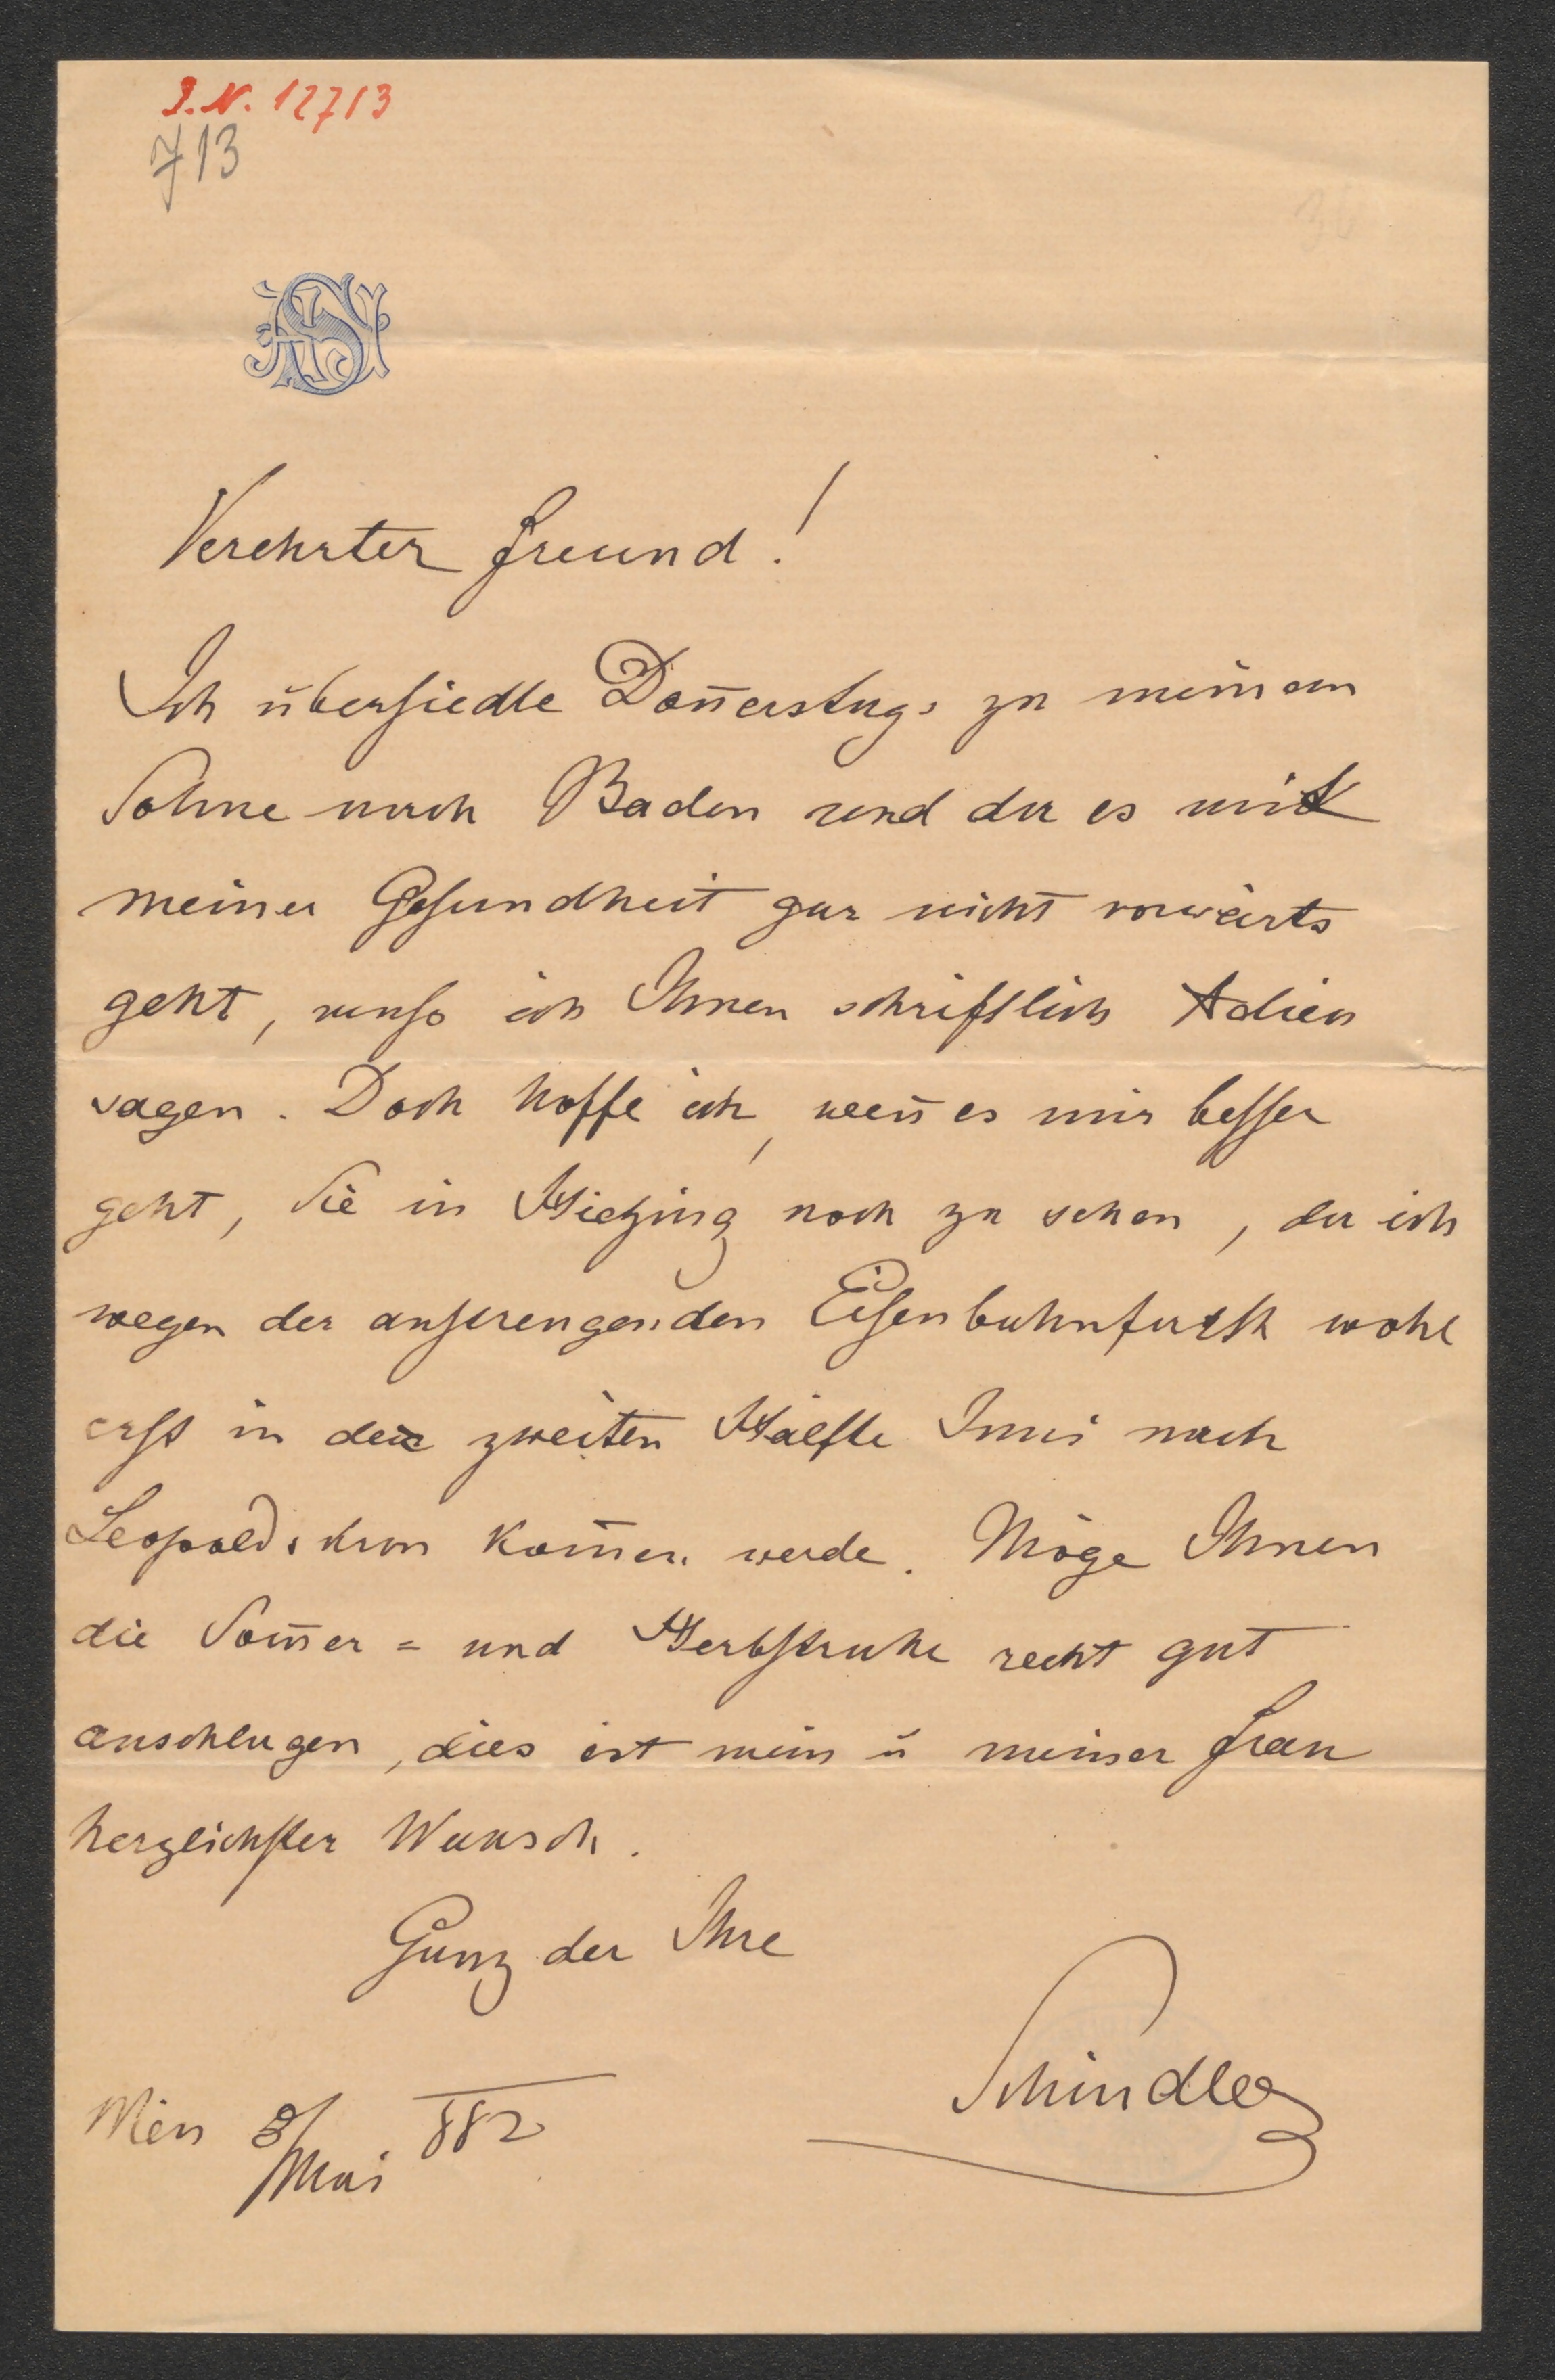 I.N. 12713
713
Verehrter Freund!
Ich übersiedle Don̄erstags zu meinem
Sohne nach Baden und da es mit
meiner Gesundheit gar nicht vorwärts
geht, muß ich Ihnen schriftlich Adieu
sagen. Doch hoffe ich, wen̄ es mir besser
geht, Sie in Hietzing noch zu sehen, da ich
wegen der anstrengenden Eisenbahnfahrt wohl
erst in der zweiten Hälfte Juni nach
Leopoldskron kom̄en werde. Möge Ihnen
die Som̄er= und Herbstruhe recht gut
anschlagen, dies ist mein u meiner Frau
herzlichster Wunsch.
Ganz der Ihre
Schindler
Wien 8/Mai 882